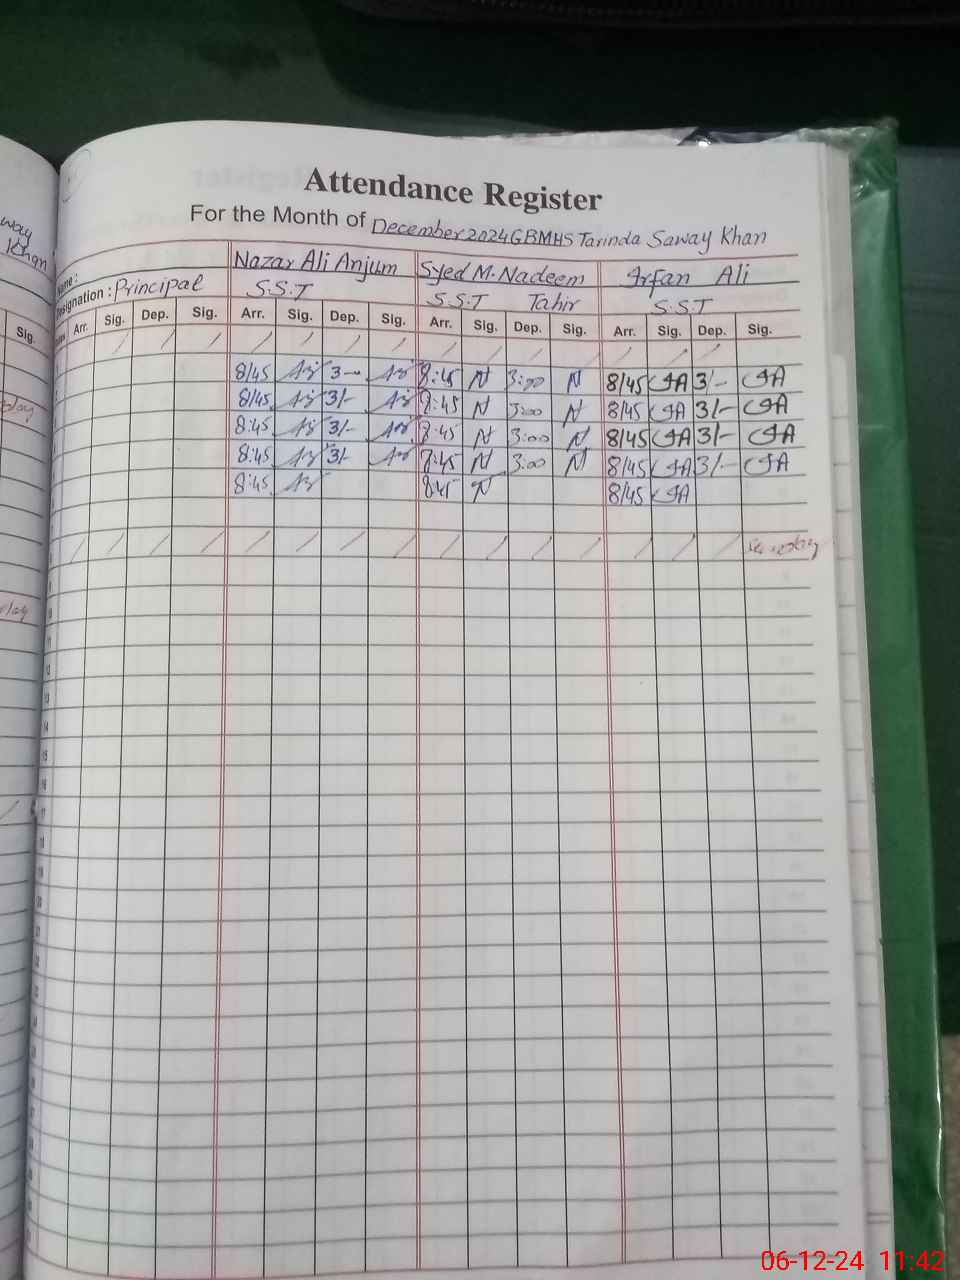 Attendance Register
For the Month of December 2024 GBMHS Tarinda Saway Khan
way
Khan
Name : Nazar Ali Anjum Syed M. Nadeem Irfan Ali
Designation : Principal S.S.T S.S.T Tahir S.S.T
Sig. Arr. Sig. Dep. Sig. Arr. Sig. Dep. Sig. Arr. Sig. Dep. Sig. Arr. Sig. Dep. Sig.
8/45 3- 8:45 N 3:00 N 8/45 IA 3/- IA
8/45 3/- 8:45 N 3:00 N 8/45 IA 3/- IA
8:45 3/- 8:45 N 3:00 N 8/45 IA 3/- IA
8:45 3/- 8:45 N 3:00 N 8/45 IA 3/- IA
8:45 845 N 8/45 IA
Sunday
10
11
12
13
14
15
16
17
18
06-12-24 11:42